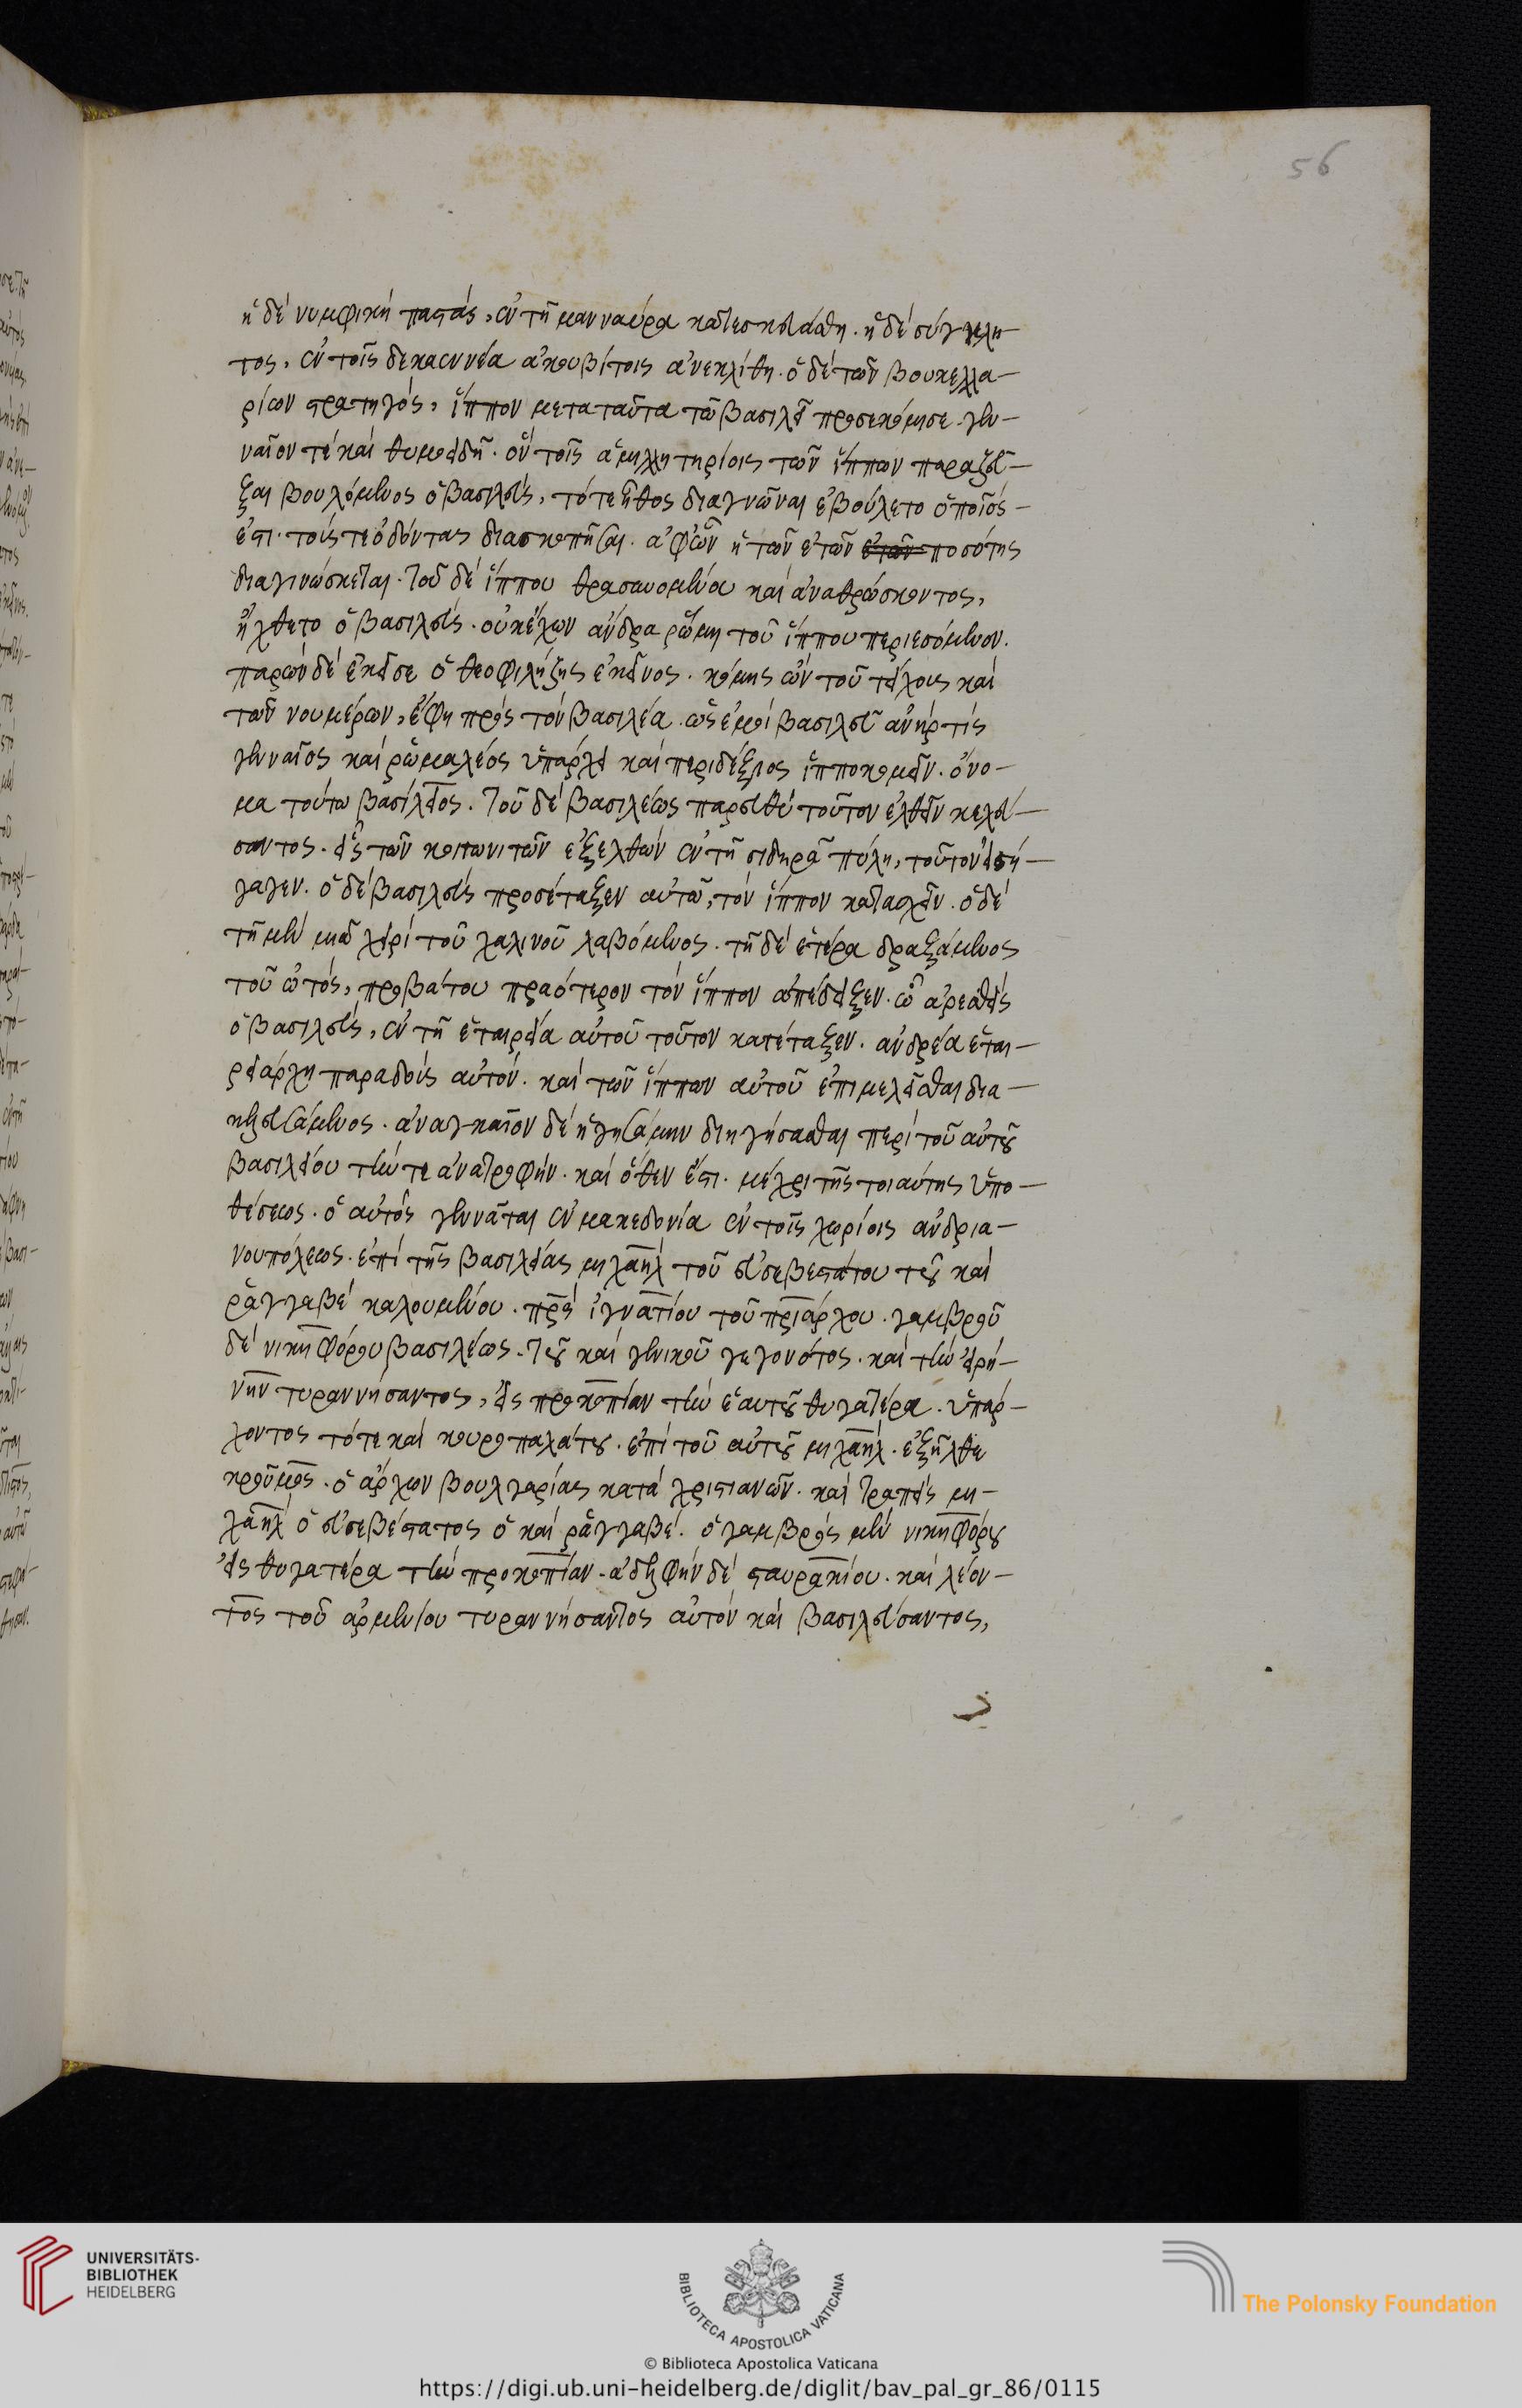 56
ἡ δὲ νυμφικὴ παστάς, ἐν τῆ μανναύρα κατεσκευάσθη. ἡ δὲ σύγκλη-
τος, ἐν τοῖς δεκαεννέα ἀκουβίτοις ἀνεκλίθη. ὁ δὲ τῶν βουκελλα-
ρίων στρατηγός, ἵππον μετα ταῦτα τῶ βασιλεῖ προσεκόμισε. γεν-
ναῖον τὲ καὶ θυμοειδῆ. ὃν τοῖς ἁμιλλητηρίοις τῶν ἵππων παραζεῦ-
ξαι βουλόμενος ὁ βασιλεύς, τό τε ἦθος διαγνῶναι ἐβούλετο ὁποῖός
ἐστι. τούς τε ὀδόντας διασκοπῆσαι. ἀφ' ὧν ἡ τῶν ἐτῶν ἐτῶν ποσότης
διαγινώσκεται. τοῦ δὲ ἵππου θρασυομένου καὶ ἀναθρώσκοντος,
ἤχθετο ὁ βασιλεύς. οὐκ ἔχων ἄνδρα ῥώμη τοῦ ἵππου περιεσόμενον.
παρὼν δὲ ἐκεῖσε ὁ θεοφιλήτζης ἐκεῖνος. κόμης ὢν τοῦ τείχους καὶ
τῶν νουμέρων, ἔφη πρὸς τὸν βασιλέα. ὡς ἐμοὶ βασιλεῦ ἀνήρ τίς
γενναῖος καὶ ῥωμαλέος ὑπάρχει καὶ περιδέξιος ἱπποκομεῖν. ὄνο-
μα τούτω βασίλειος. τοῦ δὲ βασιλέως παρευθὺ τοῦτον ἐλθεῖν κελεύ-
σαντος. εἷς τῶν κοιτωνιτῶν ἐξελθὼν ἐν τῆ σιδηρᾶ πύλη, τοῦτον εἰσή-
γαγεν. ὁ δὲ βασιλεὺς προσέταξεν αὐτῶ, τὸν ἵππον κατασχεῖν. ὁ δὲ
τῆ μὲν μιᾶ χειρὶ τοῦ χαλινοῦ λαβόμενος. τῆ δὲ ἑτέρα δραξάμενος
τοῦ ὠτός, προβάτου πραότερον τὸν ἵππον ἀπέδειξεν. ὧ ἀρεσθεὶς
ὁ βασιλεύς, ἐν τῆ ἑταιρεία αὐτοῦ τοῦτον κατέταξεν. ἀνδρέα ἑται-
ρειάρχη παραδοὺς αὐτόν. καὶ τῶν ἵππων αὐτοῦ ἐπιμελεῖσθαι δια-
κελευσάμενος. ἀναγκαῖον δὲ ἡγησάμην διηγήσασθαι περὶ τοῦ αὐτοῦ
βασιλείου τήν τε ἀνατροφήν. καὶ ὅθεν ἔστι. μέχρι τῆς τοιαύτης ὑπο-
θέσεως. ὁ αὐτὸς γεννᾶται ἐν μακεδονία ἐν τοῖς χωρίοις ἀνδρια-
νουπόλεως. ἐπὶ τῆς βασιλείας μιχαὴλ τοῦ εὐσεβεστάτου τοῦ καὶ
ῥαγγαβὲ καλουμένου. πρς ἰγνατίου τοῦ πριάρχου. γαμβροῦ
δὲ νικηφόρου βασιλέως. τοῦ καὶ γενικοῦ γεγονότος. καὶ τὴν εἰρή-
νην τυραννήσαντος, εἰς προκοπίαν τὴν ἑαυτοῦ θυγατέρα. ὑπάρ-
χοντος τότε καὶ κουροπαλάτου. ἐπὶ τοῦ αὐτοῦ μιχαὴλ. ἐξῆλθε
κροῦμος. ὁ ἄρχων βουλγαρίας κατὰ χριστιανῶν. καὶ τραπεὶς μι-
χαὴλ ὁ εὐσεβέστατος ὁ καὶ ῥαγγαβέ. ὁ γαμβρὸς μὲν νικηφόρου
εἰς θυγατέρα τὴν προκοπίαν. ἀδελφὴν δὲ σταυρακίου. καὶ λέον-
τος τοῦ ἀρμενίου τυραννήσαντος αὐτὸν καὶ βασιλεύσαντος,
UNIVERSITÄTS-
BIBLIOTHEK
HEIDELBERG
BIBLIOTECA APOSTOLICA VATICANA
The Polonsky Foundation
© Biblioteca Apostolica Vaticana
https://digi.ub.uni-heidelberg.de/diglit/bav_pal_gr_86/0115